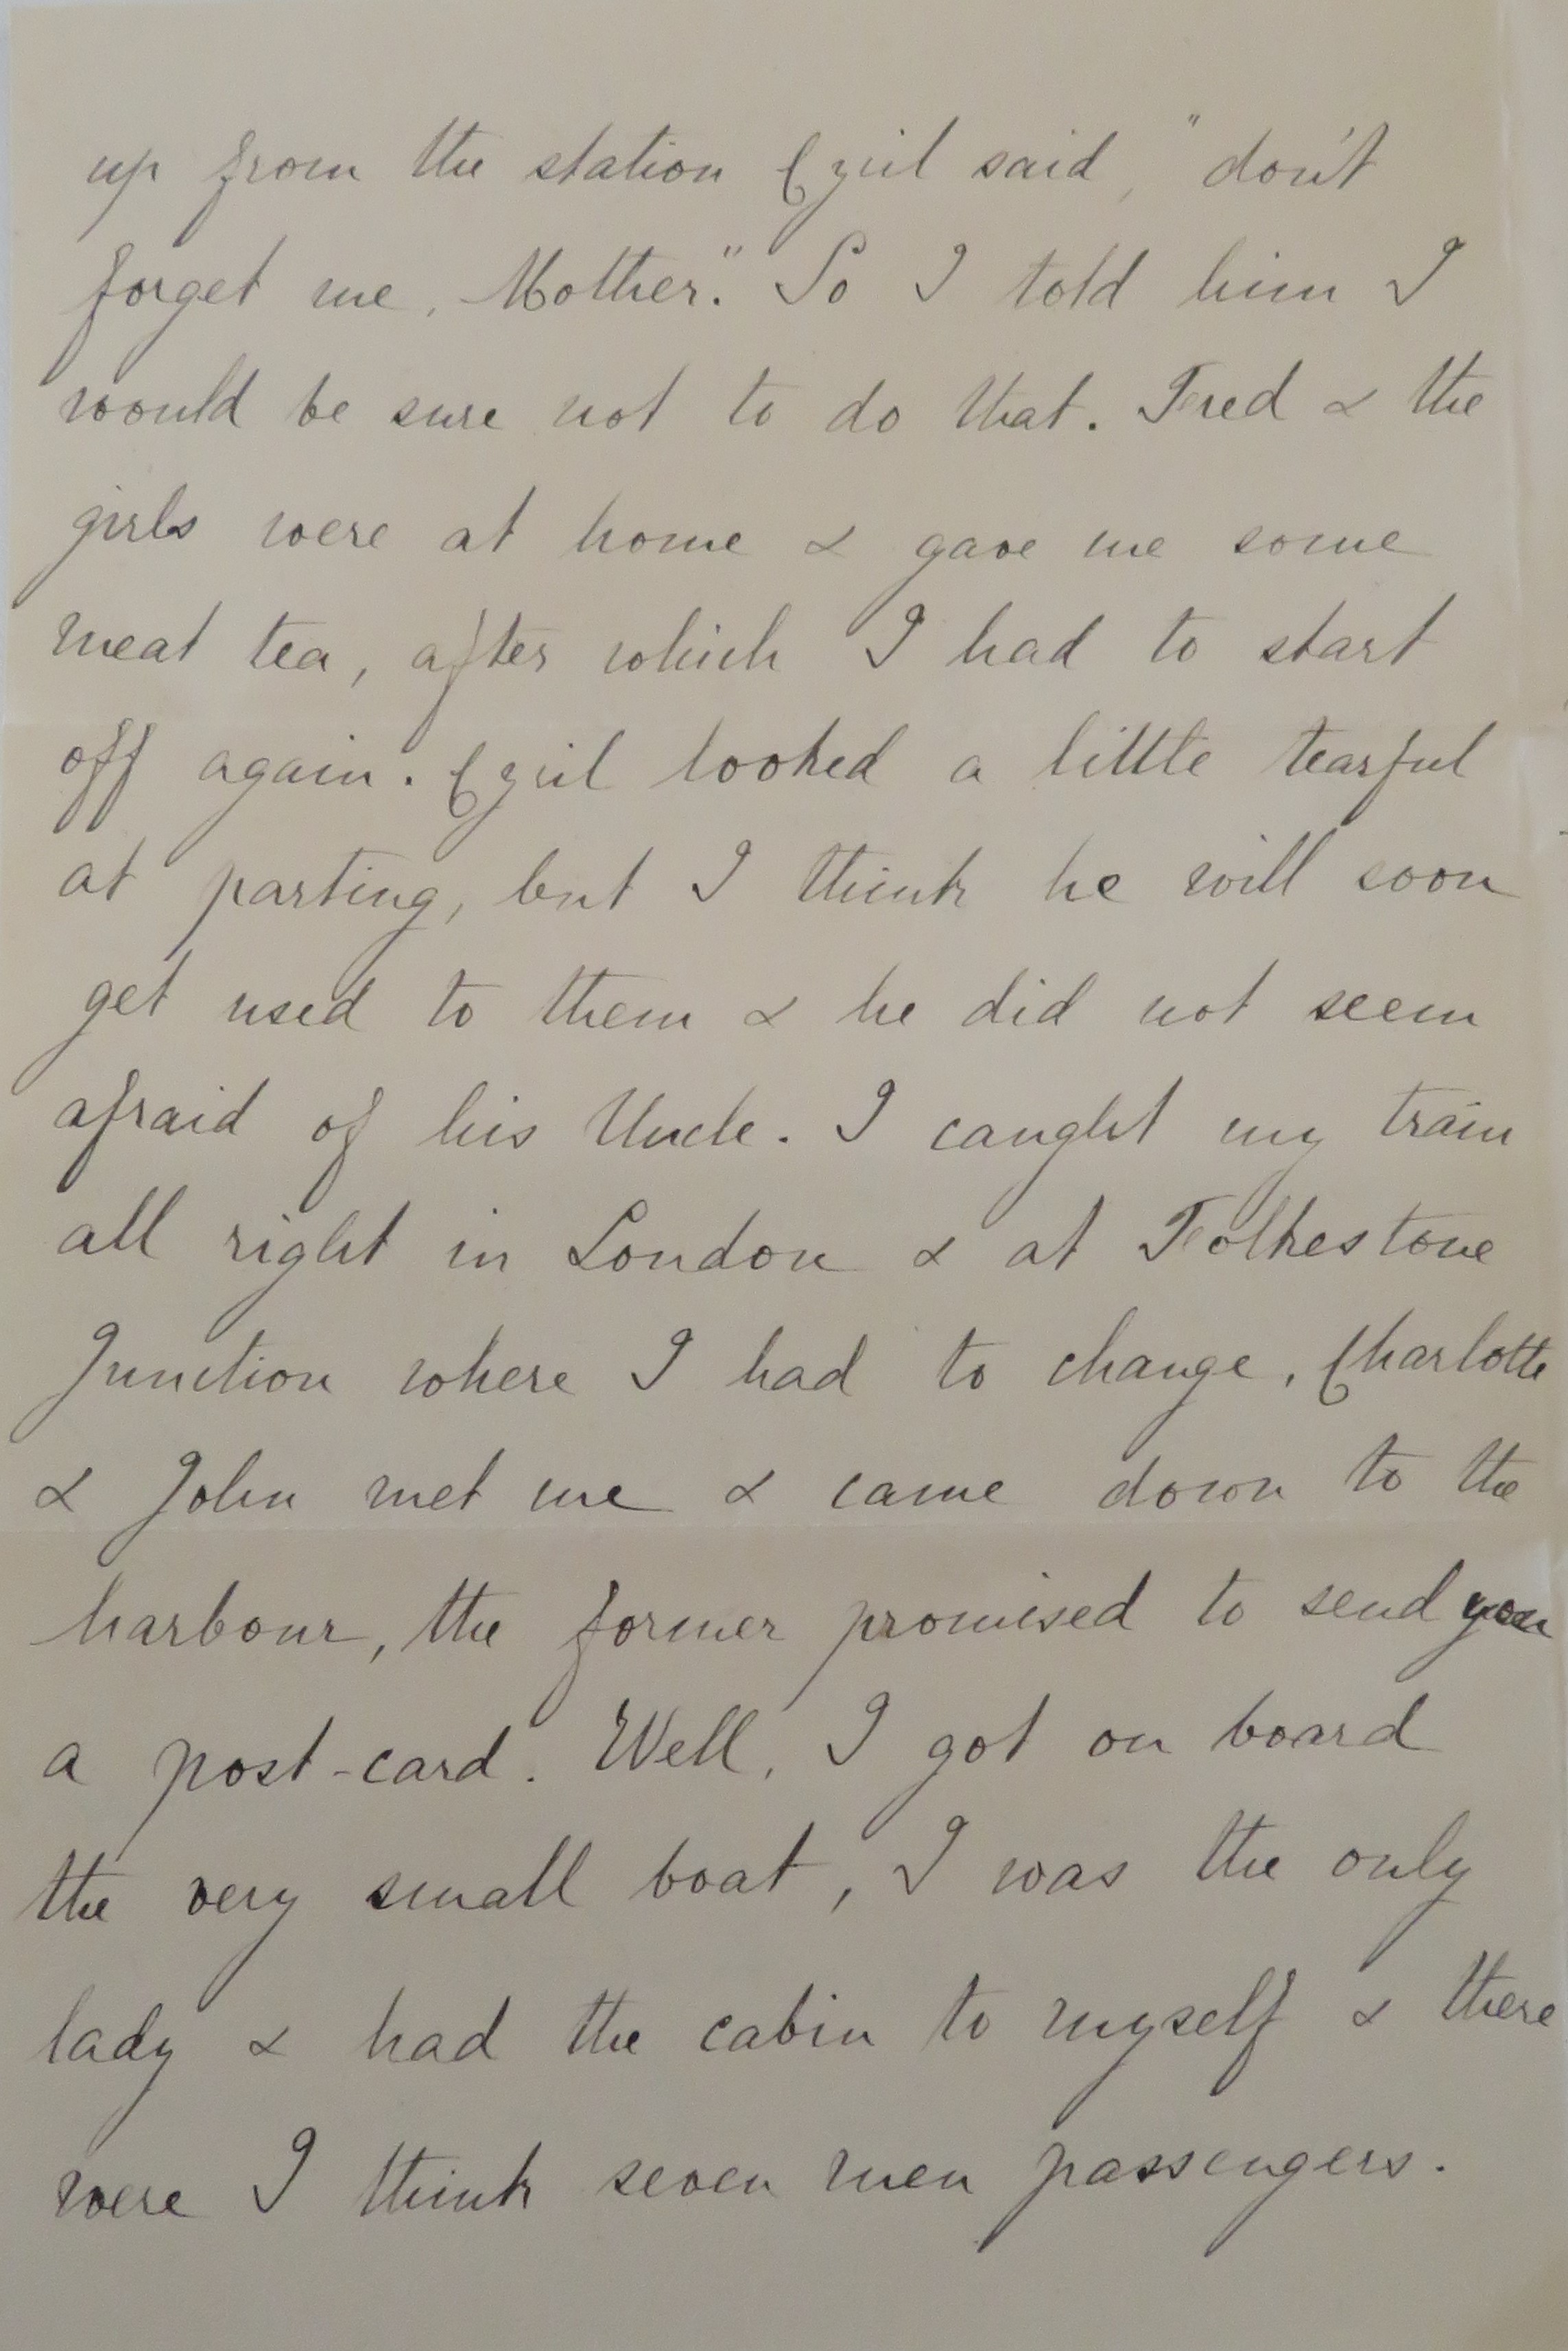 up from the station Cyril said, "don't
forget me, Mother." So I told him I
would be sure not to do that. Fred & the
girls were at home & gave me some
meat tea, after which I had to start
off again. Cyril looked a little tearful
at parting, but I think he will soon
get used to them & he did not seem
afraid of his Uncle. I caught my train
all right in London & at Folkestone
Junction where I had to change, Charlotte
& John met me & came down to the
harbour, the former promised to send you
a post-card. Well, I got on board
the very small boat, I was the only
lady & had the cabin to myself & there
were I think seven men passengers.